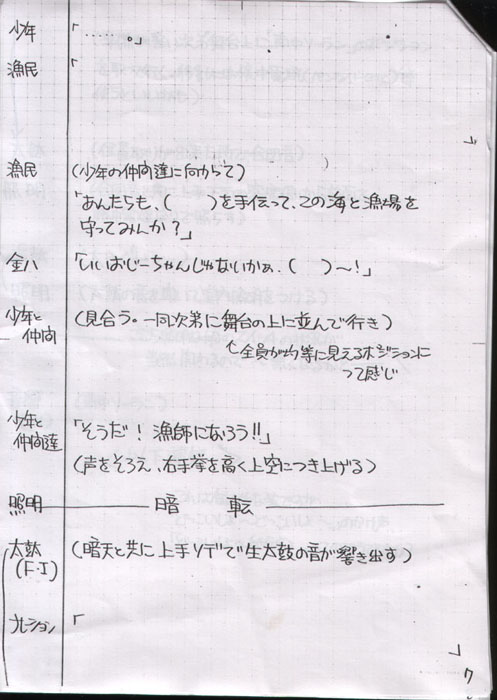 少年 「……。」
漁民 「
」
漁民 (少年の仲間達に向かって)
「あんたらも、( )を手伝って、この海と漁場を
守ってみんか?」
金八 「いいおじーちゃんじゃないかぁ、( )~!」
少年と (見合う。一同次第に舞台の上に並んで行き)
仲間
↑全員が均等に見えるポジションに
って感じ
少年と 「そうだ! 漁師になろう!!」
仲間達
(声をそろえ、右手拳を高く上空につき上げる)
照明 暗 転
太鼓 (暗天と共に上手ソデで生太鼓の音が響き出す)
(F・I)
ナレーション 「
」
7